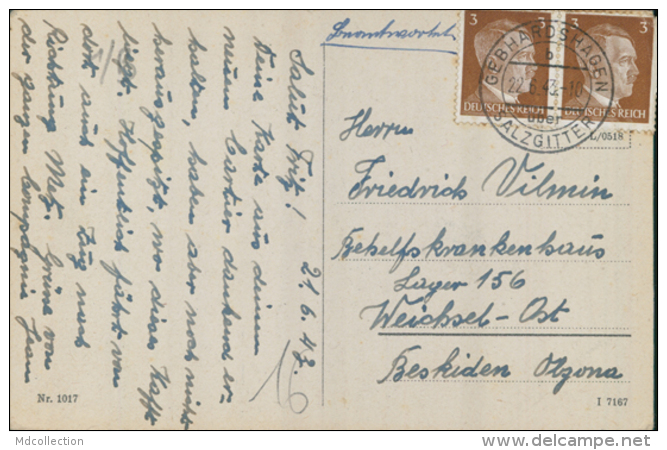 Salut Fritz! 21.6.43.
Deine Karte aus deinem
neuen Cartier dankend er-
halten, haben aber noch nicht
herausgespitzt, wo dieses Kaff
liegt. Hoffentlich fährt von
dort auch ein Zug nach
Richtung Metz. Grüße von
der ganzen Compagnie Jean
16
Nr. 1017
Beantwortet
3 3
DEUTSCHES REICH DEUTSCHES REICH
GEBHARDSHAGEN
b
22.6.43.-10
über
SALZGITTER
L/0518
Herrn
Friedrich Vilmin
Behelfskrankenhaus
Lager 156
Weichsel-Ost
Beskiden Olzona
I 7167
Mdcollection
www.delcampe.net